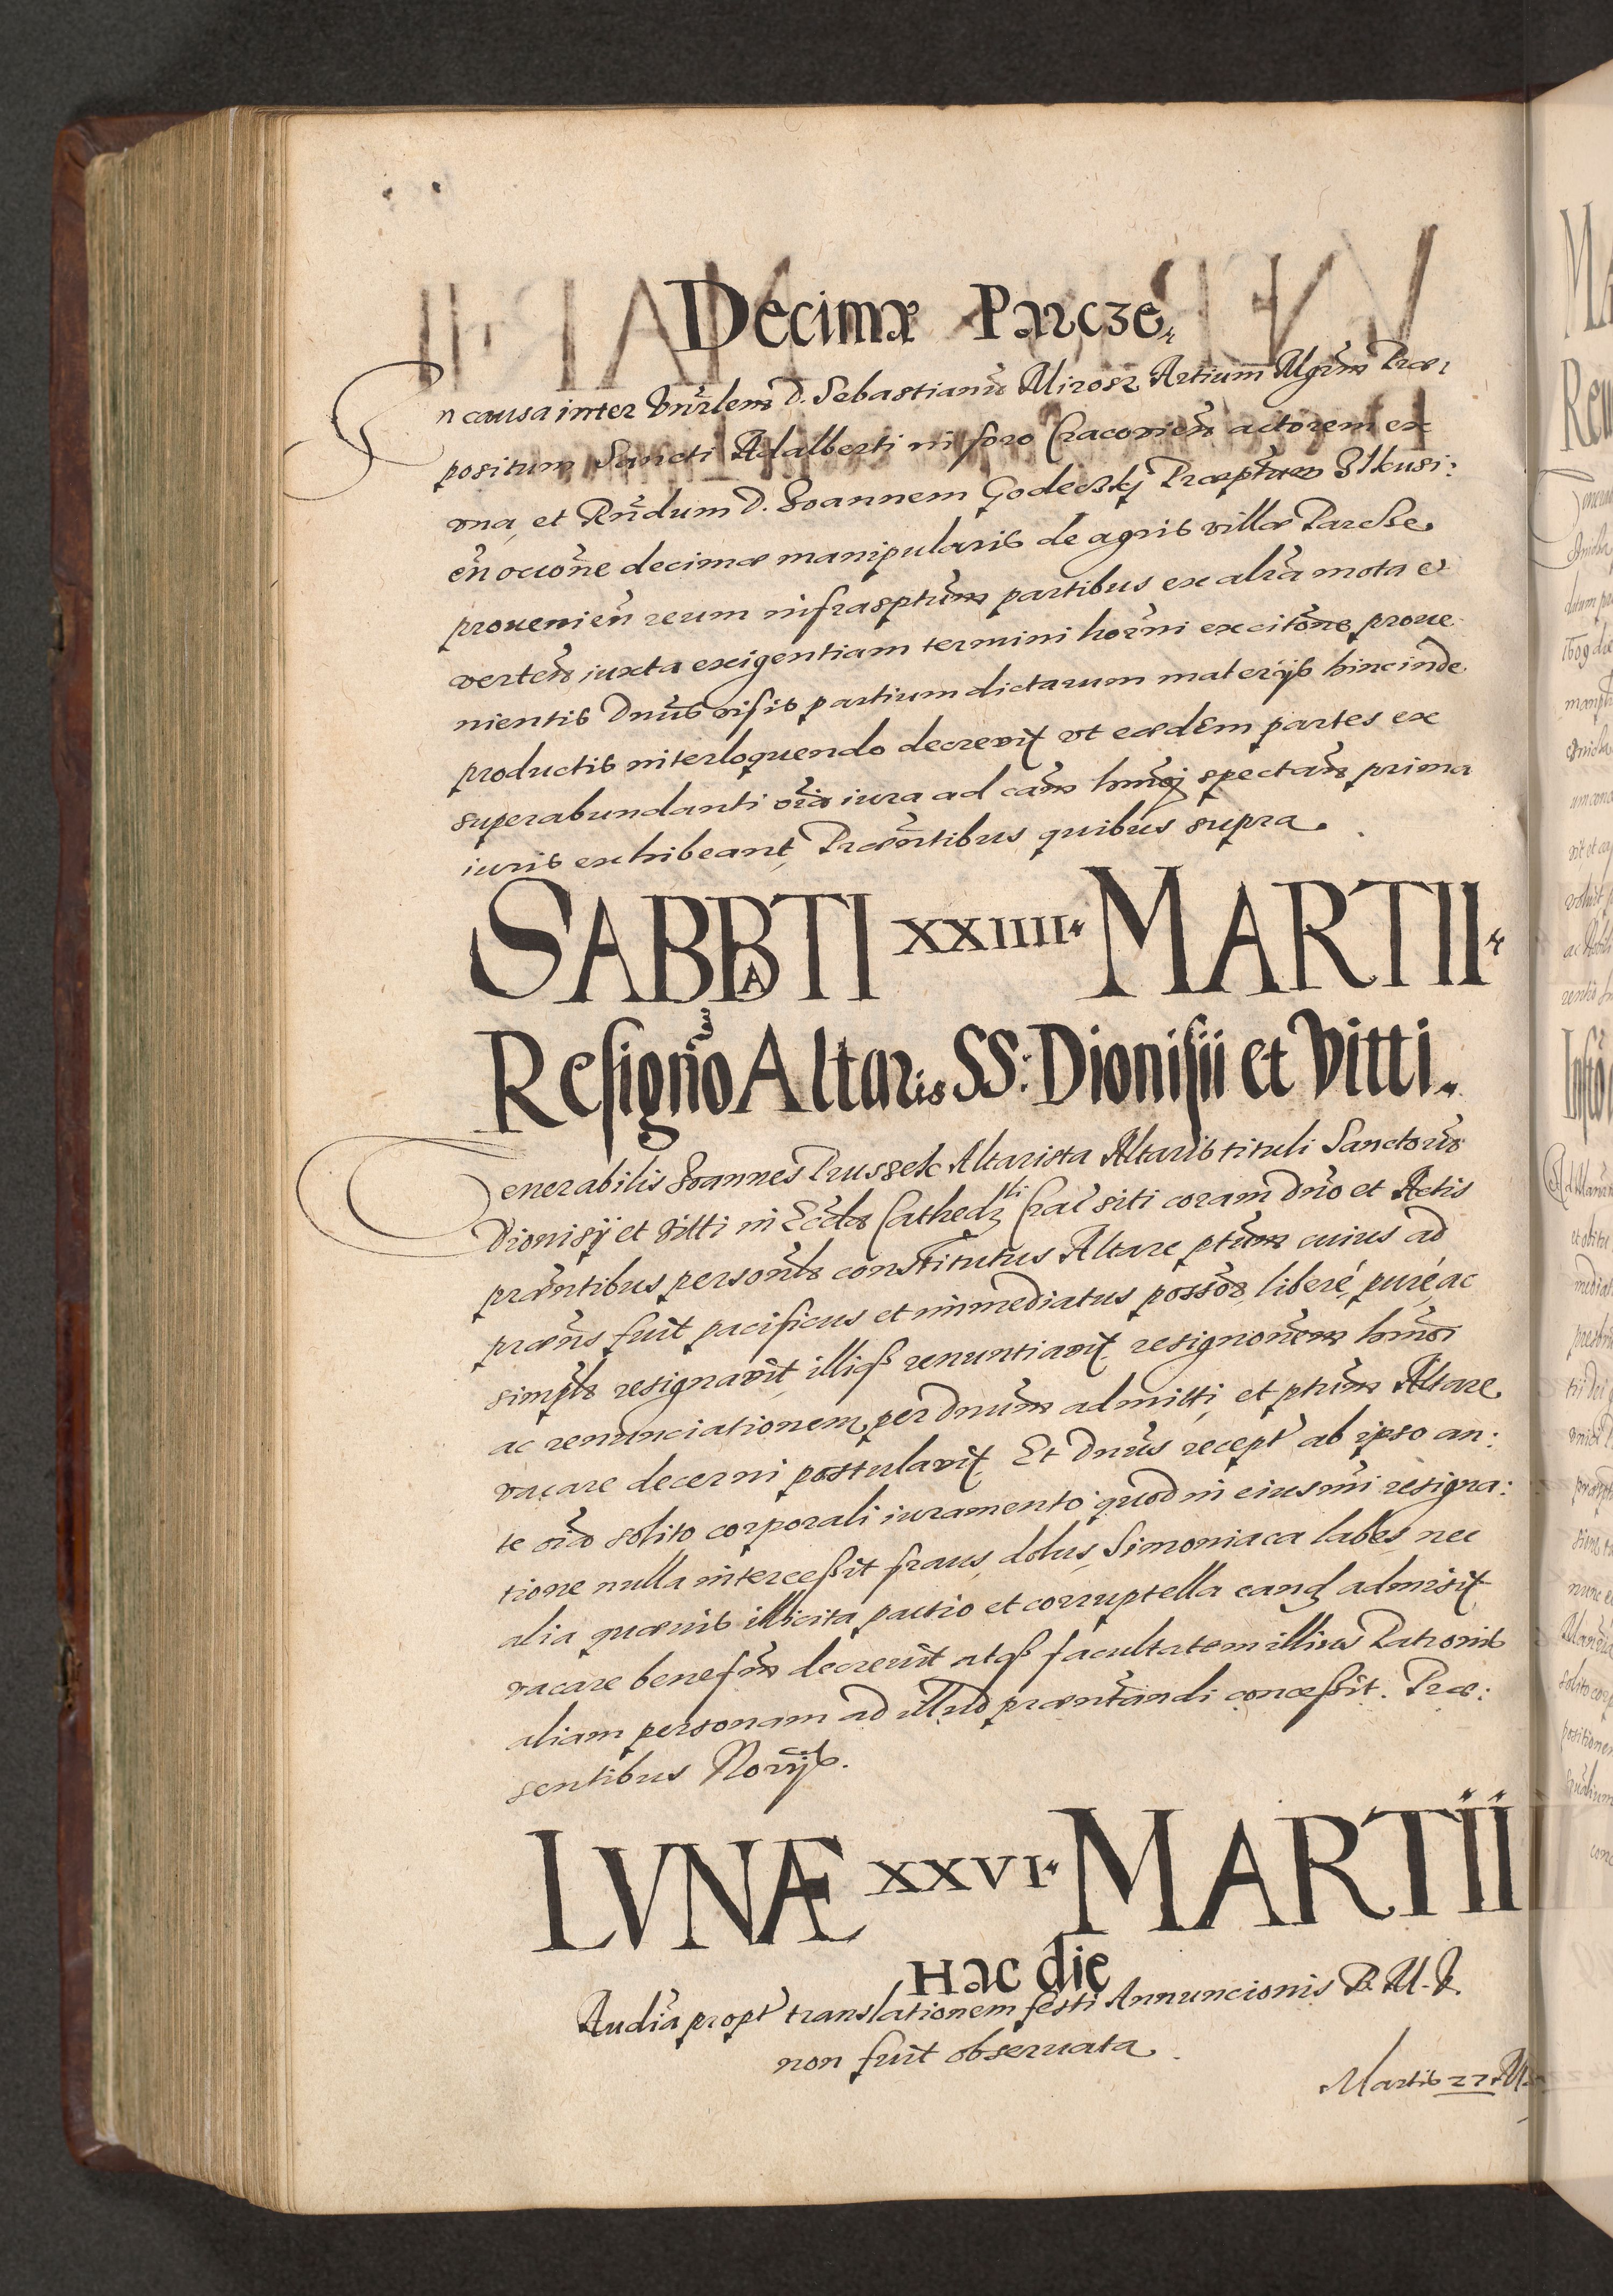 Decimæ Parcze
In causa inter Vnrlem D. Sebastianū Mirosz Artium Mgrm Præ
positum Sancti Adalberti in foro Cracovien̄ actorem ex
vna, et Rn̄dum D. Joannem Godecskj Præptum Ilkusi:
en̄ oc̄cione decimæ manipularis de agris villæ Parcze
prouenien̄ reum infrasptum partibus ex alr̄a mota et
verten̄ iuxta exigentiam termini hor̄ni ex citōne proue
nientis Dnūs visis partium dictarum materijs hincinde
productis interloquendo decrevit vt eædem partes ex
superabundanti oīa iura ad cām hmōj spectan̄ prima
iuris exhibeant, Præn̄tibus quibus supra.
SABBATI XXIIII MARTII
Resignōo Altaris SS: Dionisii et Vitti
Venerabilis Joannes Prussek Altarista Altaris tituli Sanctorū
Dionisÿ et Vitti in Eccla Cathedrli Crac̄ siti coram Dn̄o et Actis
præn̄tibus personlr constitutus Altare ptum cuius ad
præn̄s fuit pacificus et immediatus possor, liberé, puré, ac
simplr resignavit, illiqß renuntiavit, resignōnem hmōi
ac renunciationem per Dnūm admitti, et ptum Altare
vacare decerni postulavit, Et Dnūs recept̄ ab ipso an:
te oīa solito corporali iuramento quod in eiusm̄i resigna:
tione nulla interceßit fraus, dolus, Simoniaca labes, nec
alia quævis illicita pactio et corruptella eand admisit
vacare benefm decreuit atqß facultatem illius Patronis
aliam personam ad illud præn̄tandi conceßit. Præ:
sentibus Norijs.
LVNÆ XXVI MARTII
Hac die
Audīa propt̄ translationem festi Annuncionis B. M. V.
non fuit obseruata.
Martis 27 M